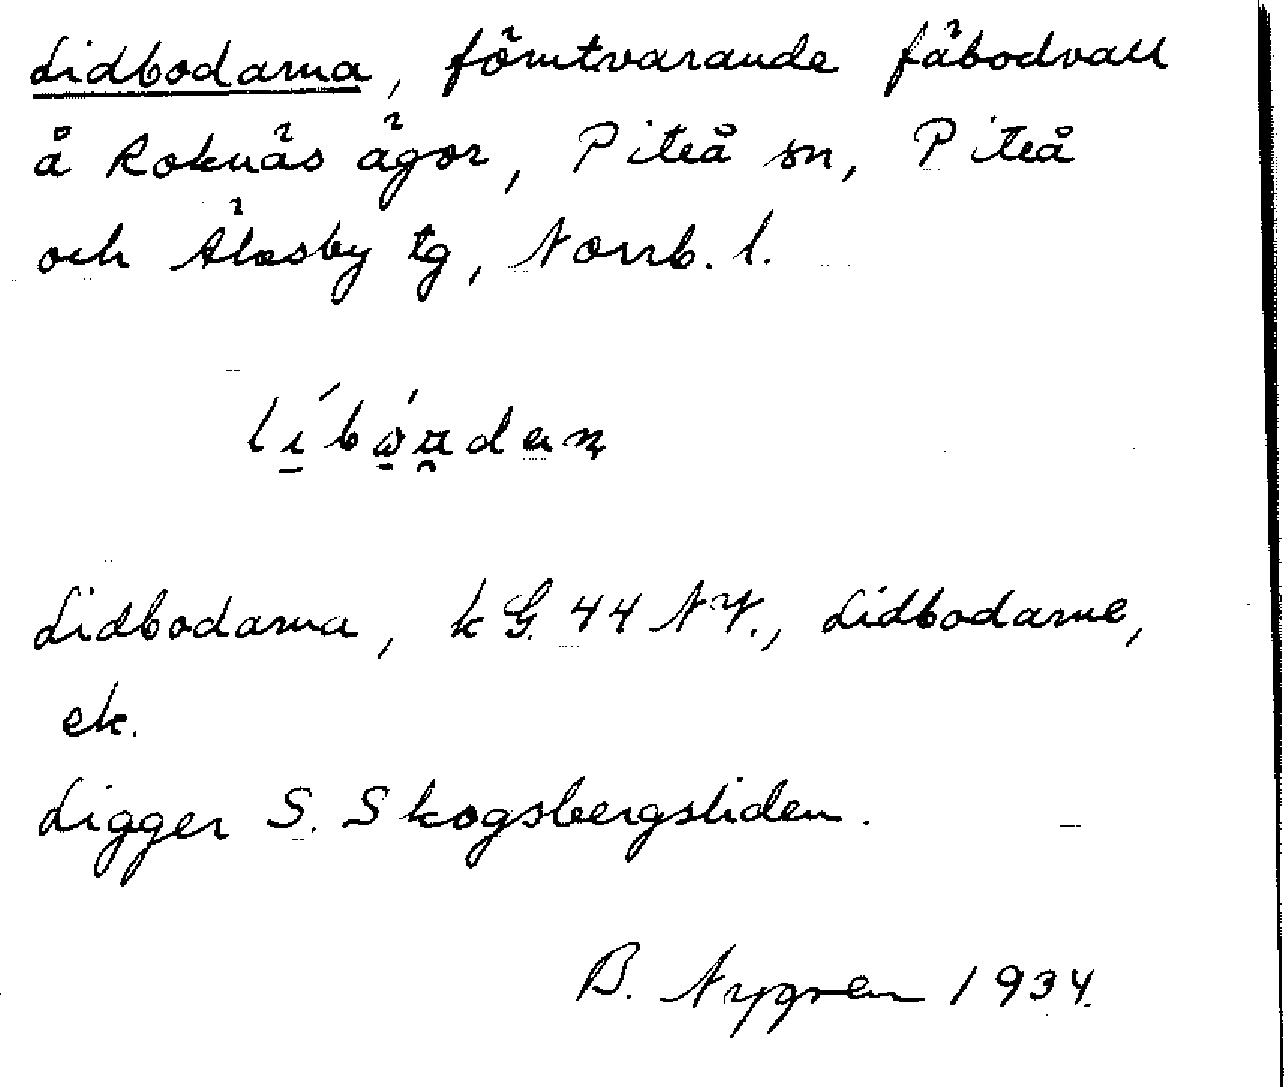 Lidbodarna, förutvarande fäbodvall
å Roknäs ägor, Piteå sn, Piteå
och Älvsby tg, Norrb. l.
Lidbodarna, kG. 44 NV., Lidbodarne,
ek.
Ligger S. Skogsbergsliden.
B. Nygren 1934.